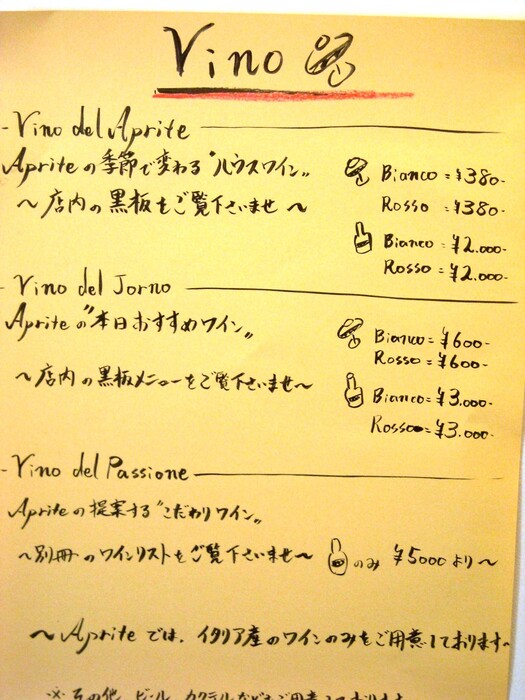 Vino
- Vino del Aprite
Apriteの季節で変わる"ハウスワイン"
Bianco = ¥380-
～店内の黒板をご覧下さいませ～
Rosso = ¥380-
Bianco = ¥2.000-
Rosso = ¥2.000-
- Vino del Jorno
Apriteの"本日おすすめワイン"
Bianco = ¥600-
Rosso = ¥600-
～店内の黒板メニューをご覧下さいませ～
Bianco = ¥3.000-
Rosso = ¥3.000-
- Vino del Passione
Apriteの提案する"こだわりワイン"
～別冊のワインリストをご覧下さいませ～ のみ ¥5000より～
～Apriteでは、イタリア産のワインのみをご用意しております～
※その他 ビール カクテルなどもご用意しております